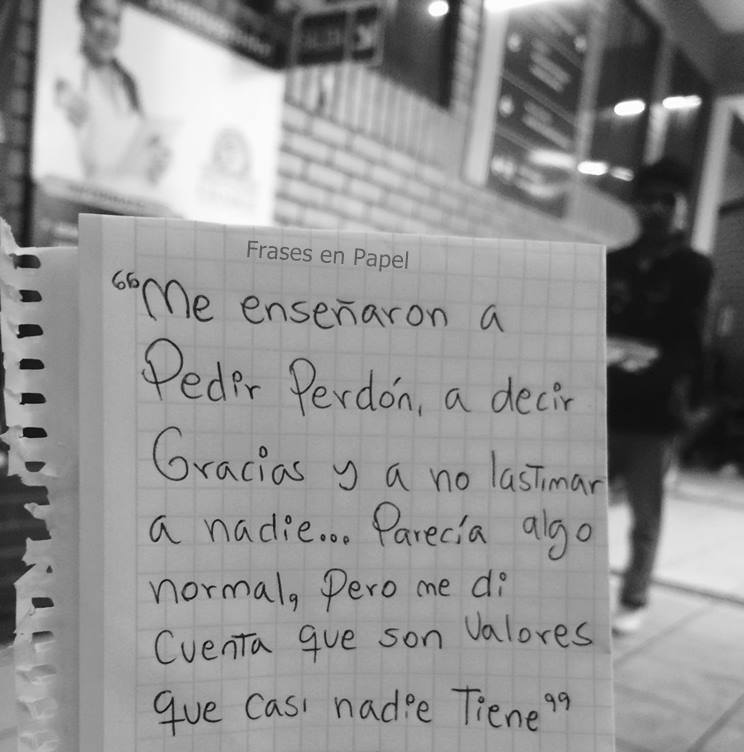 Frases en Papel
"Me enseñaron a
Pedir Perdón, a decir
Gracias y a no lastimar
a nadie... Parecía algo
normal, Pero me di
Cuenta que son Valores
que casi nadie Tiene"